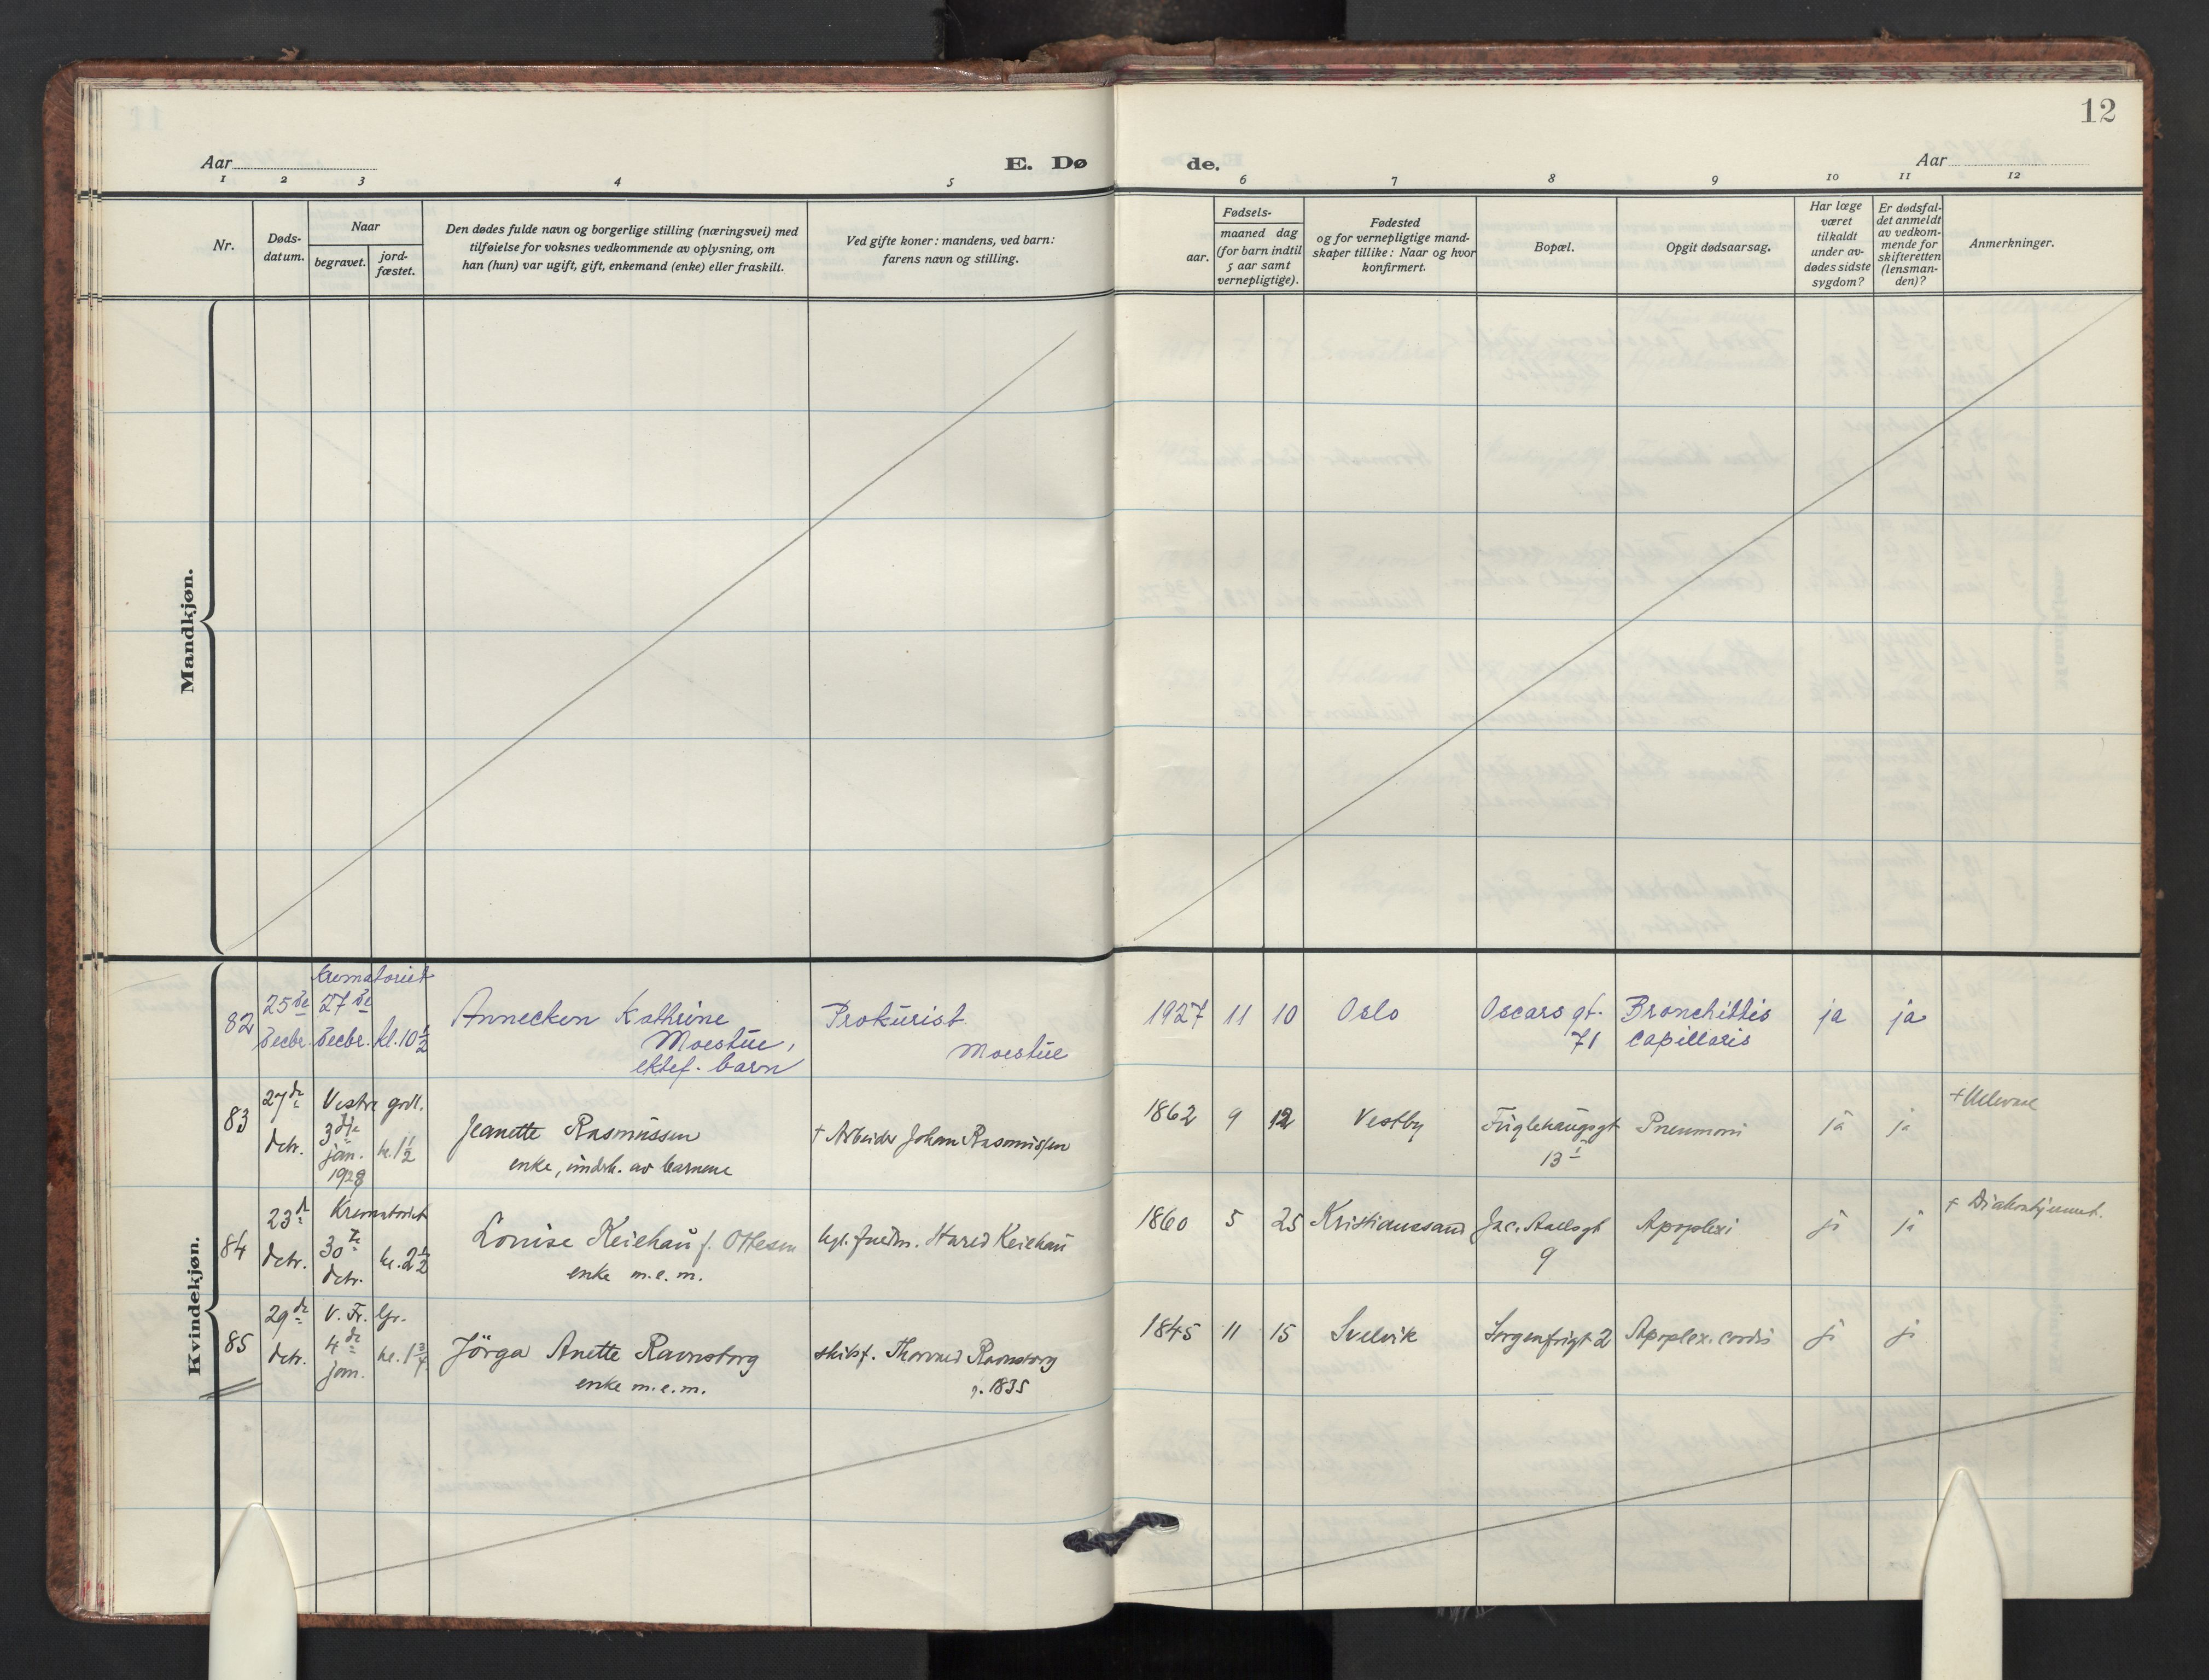 12
Aar
E. Dø
de.
Aar
1 2 3 4 5 6 7 8 9 10 11 12
Nr.
Døds-
datum.
Naar
begravet.
jord-
fæstet.
Den dødes fulde navn og borgerlige stilling (næringsvei) med
tilføielse for voksnes vedkommende av oplysning, om
han (hun) var ugift, gift, enkemand (enke) eller fraskilt.
Ved gifte koner: mandens, ved barn:
farens navn og stilling.
Fødsels-
aar.
maaned dag
(for barn indtil
5 aar samt
vernepligtige).
Fødested
og for vernepligtige mand-
skaper tillike: Naar og hvor
konfirmert.
Bopæl.
Opgit dødsaarsag.
Har læge
været
tilkaldt
under av-
dødes sidste
sygdom?
Er dødsfal-
det anmeldt
av vedkom-
mende for
skifteretten
(lensman-
den)?
Anmerkninger.
Mandkjøn.
Kvindekjøn.
Krematoriet
82 25de 27de Annecken Kathrine Prokurist 1927 11 10 Oslo Oscars gt. Bronchittis ja ja
Decbr. Decbr. kl. 10 1/2 Moestue, Moestue 71 capillaris
ektef. barn
83 27de Vestre gvl. 1862 9 12 Vestby Fuglehaugsgt Pneumoni ja ja
Dcbr. 3dje jan. kl. 1 1/2 Jeanette Rasmussen † Arbeider Johan Rasmussen 13 I
1928 enke, underh. av barnene
84 23d Krematoriet 1860 5 25 Kristianssand Jac. Aallsgt Apoplexi ja ja
Dcbr. 30te kl. 2 1/2 Louise Keichau f. Ottesen Keichau 9
Dcbr. enke m.e.m.
85 29de V. Fr. Gr. 1845 11 15 Svelvik Sorgenfrigt 2 Apoplex. cordis ja ja
Dcbr. 4de kl. 1 3/4 Jörga Anette Ravnsborg skibsf. Ravnsborg
jan. enke m.e.m. f. 1835